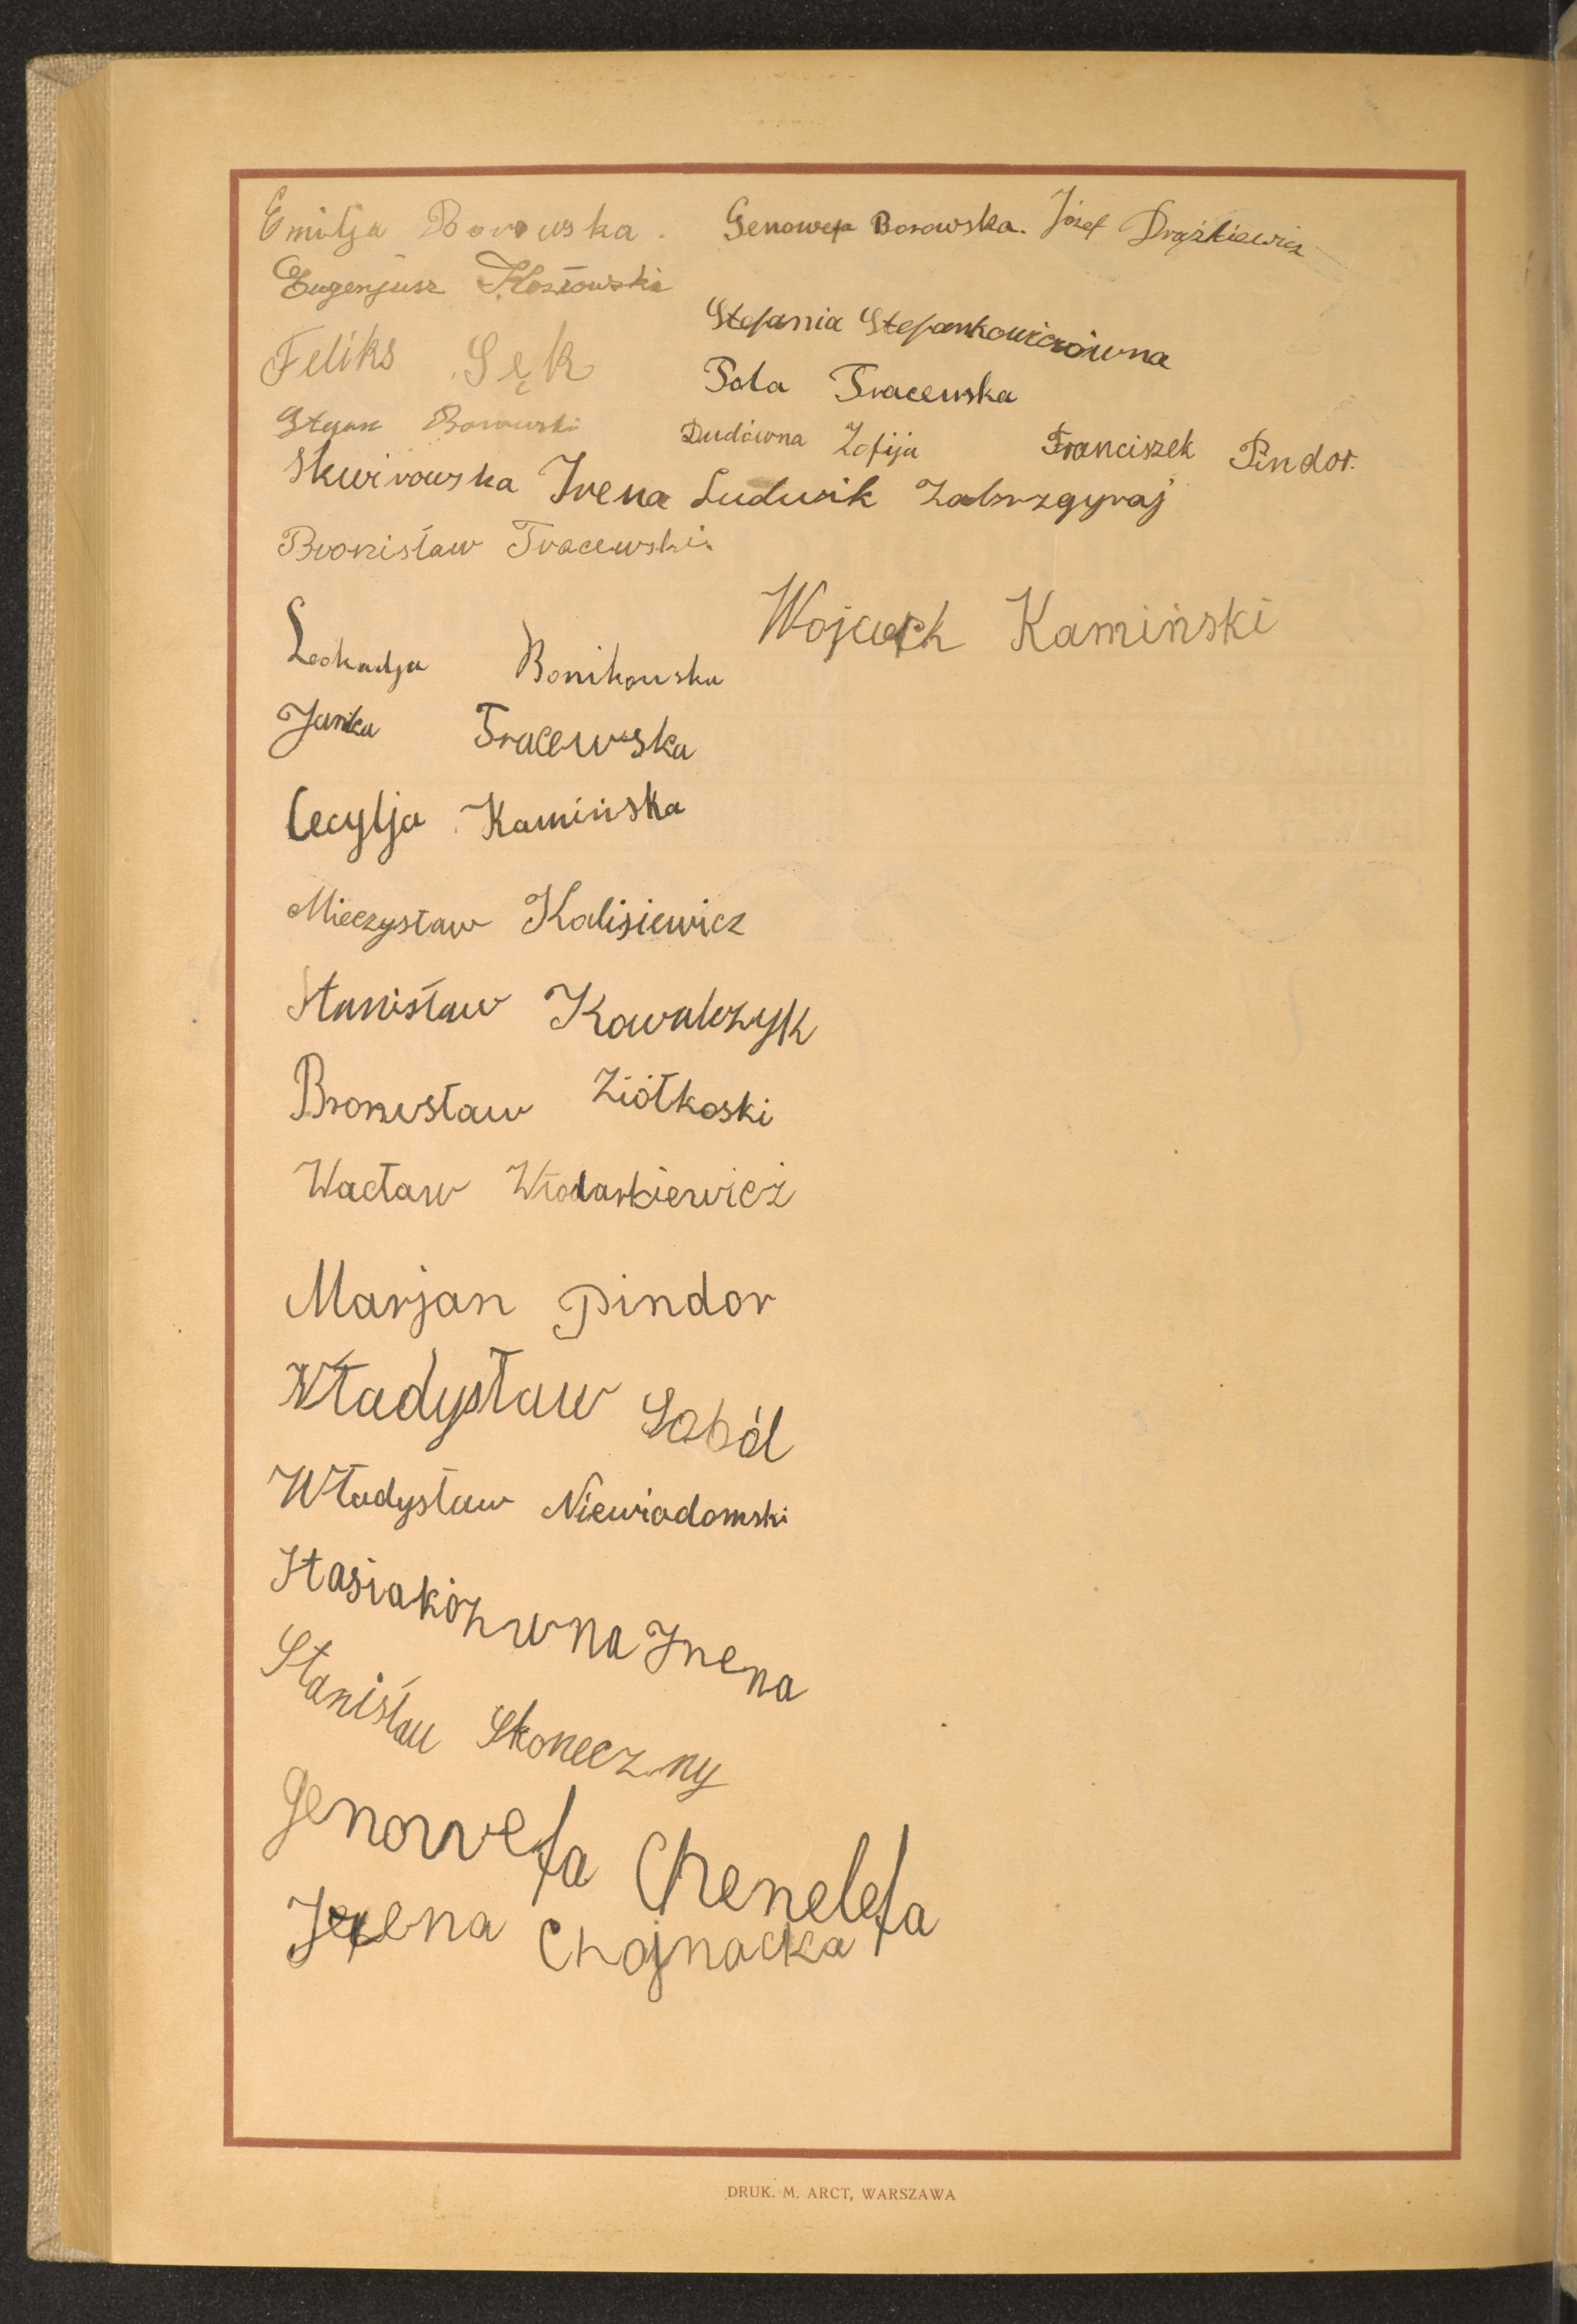 Emilja Borowska. Genowefa Borowska. Józef Drążkiewicz
Eugenjusz Kozłowski
Stefania Stefankowiczówna
Feliks Sęk
Pola Tracewska
Stefan Borowski Dudówna Zofija Franciszek Pindor.
Skwirowska Irena Ludwik Zabrzgyraj
Bronisław Tracewski.
Wojciech Kamiński
Leokadja Bonikowska
Janka Tracewska
Cecylja Kamińska
Mieczysław Kalisiewicz
Stanisław Kowalczyk
Bronisław Ziółkoski
Wacław Włodarkiewicz
Marjan Pindor
Władysław Soból
Władysław Niewiadomski
Stasiakówna Irena
Stanisław Skoneczny
Genowefa Chenelefa
Irena Chojnacka
DRUK. M. ARCT, WARSZAWA